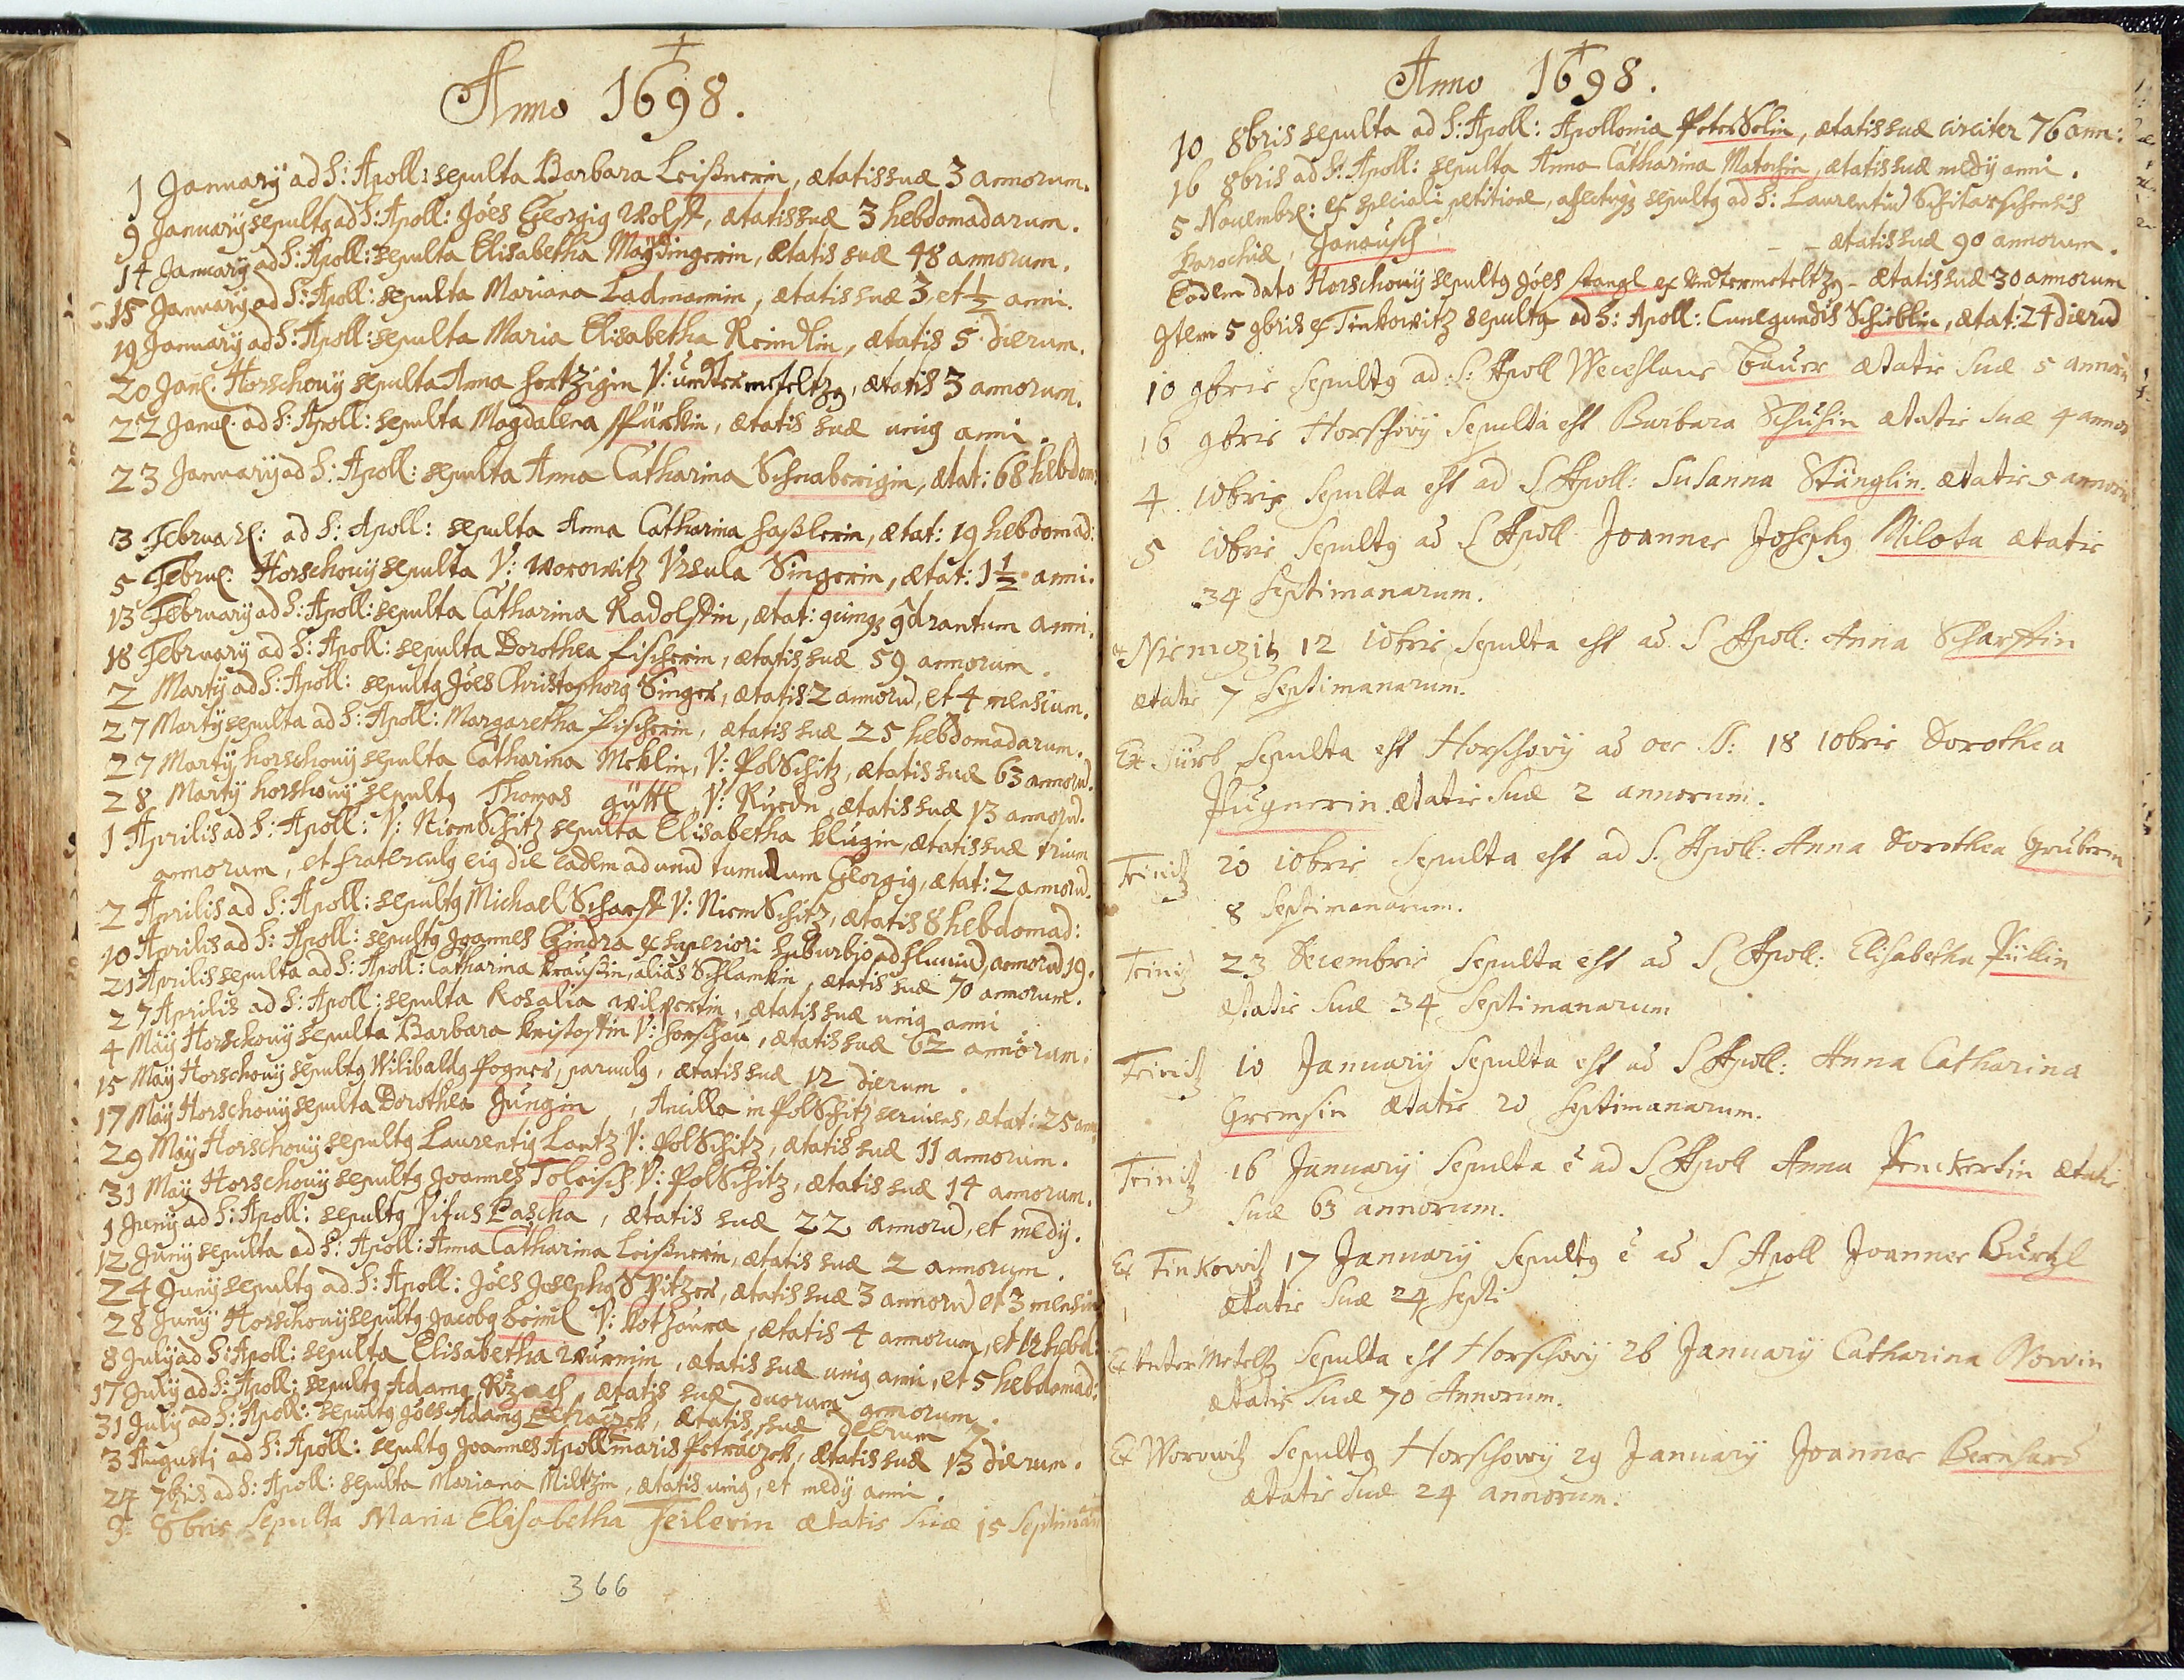 Anno 1698.
1 Januarÿ ad S: Apoll: sepulta Barbara Leißnerin, ætatis suæ 3 annorum.
9 Januarÿ sepultg ad S: Apoll: Jões Georgig Wolf, ætatis suæ 3 hebdomadarum.
14 Januarÿ ad S: Apoll: sepulta Elisabetha Maÿdingerin, ætatis suæ 48 annorum.
15 Januarÿ ad S: Apoll: sepulta Mariana Ladmanin, ætatis suæ 3, et ½ anni.
19 Januarÿ ad S: Apoll: sepulta Maria Elisabetha Reindlin, ætatis 5 dierum.
20 Jan: Horschouÿ sepulta Anna hertzigin V: undtermeteltzg, ætatis 3 annorum.
22 Jan: ad S: Apoll: sepulta Magdalena, ætatis suæ unig anni.
23 Januarÿ ad S: Apoll: sepulta Anna Catharina Schnaberigin, ætat: 68 hebdom:
3 Februa: ad S: Apoll: sepulta Anna Catharina haßlerin, ætat: 19 hebdomad:
5 Febru: Horschouÿ sepulta V: Worowitz Vrsula Singerin, ætat: 1½ anni.
13 Februarÿ ad S: Apoll: sepulta Catharina Radolfin, ætat: anni.
18 Februarÿ ad S: Apoll: sepulta Dorothea fischerin, ætatis suæ 59 annorum.
2 Martÿ ad S: Apoll: sepultg Jões Christophorg Singer, ætatis 2 annorũ, et 4 mensium.
27 Martÿ sepulta ad S: Apoll: Margaretha fischerin, ætatis suæ 25 hebdomadarum.
27 Martÿ horschouÿ sepulta Catharina Meklin, V: Polschitz, ætatis suæ 63 annorũ.
28 Martÿ horschouÿ sepultg Thomas gÿttl, V:, ætatis suæ 13 annorũ.
1 Aprilis ad S: Apoll: V: Niemschitz sepulta Elisabetha klugin, ætatis suæ trium
annorum, et fraterculg eig die eadem ad unũ tumulum Georgig, ætat: 2 annorũ.
2 Aprilis ad S: Apoll: sepultg Michael Scharf V: Niemschitz, ætatis 8 hebdomad:
10 Aprilis ad S: Apoll: sepultg Joannes Gindra ex superiori suburbio ad fluuiũ, annorũ 19.
21 Aprilis sepulta ad S: Apoll: Catharina kraußin, alias Schlankin, ætatis suæ 70 annorum.
27 Aprilis ad S: Apoll: sepulta Rosalia wilpertin, ætatis suæ unig anni.
4 Maÿ Horschouÿ sepulta Barbara kristoffin V: horschau, ætatis suæ 62 annorum.
15 Maÿ Horschouÿ sepultg Wilibaldg Pogner, paruulg, ætatis suæ 12 dierum.
17 Maÿ Horschouÿ sepulta Dorothea Jungin, Ancilla in Polschitz seruiens, ætat: 25 ann:
29 Maÿ Horschouÿ sepultg Laurentig Lantz V: Polschitz, ætatis suæ 11 annorum.
31 Maÿ Horschouÿ sepultg Joannes Toleisch V: Polschitz, ætatis suæ 14 annorum.
1 Junÿ ad S: Apoll: sepultg Vitus Pascha, ætatis suæ 22 annorũ, et medÿ.
12 Junÿ sepulta ad S: Apoll: Anna Catharina Leißnerin, ætatis suæ 2 annorum.
24 Junÿ sepultg ad S: Apoll: Jões Josephg Spitzer, ætatis suæ 3 annorũ et 3 mensiũ
28 Junÿ Horschouÿ sepultg Jacobg beiml V: kotzaura, ætatis 4 annorum, et 12 hebd:
8 Julÿ ad S: Apoll: sepulta Elisabetha wurmin, ætatis suæ unig anni, et 5 hebdomad:
17 Julÿ ad S: Apoll: sepultg Adamg, ætatis suæ duorum annorum.
31 Julÿ ad S: Apoll: sepultg Jões Adamg Petraczek, ætatis suæ dierum 7
3 Augusti ad S: Apoll: sepultg Joannes Apollinaris Petraczek, ætatis suæ 13 dierum.
24 7bris ad S: Apoll: sepulta Mariana Miltzin, ætatis unig, et medÿ anni.
3 8bris sepulta Maria Elisabetha Feilerin ætatis suæ 15 septiman
366
Anno 1698.
10 8bris sepulta ad S: Apoll: Apollonia Peterselin, ætatis suæ circiter 76 ann:
16 8bris ad S: Apoll: sepulta Anna Catharina Matschin, ætatis suæ medÿ anni.
5 Nouembr: ex speciali petitione, sepultg ad S: Laurentiũ Schitarschensis
Parochiæ, Janausch - - ætatis suæ 90 annorum.
Eadem dato Horschouÿ sepultg Jões Stangl ex Vndtermeteltzg - ætatis suæ 30 annorum
Item 5 9bris ex Tinkowitz sepulta ad S: Apoll: Cunegundis Schieblin, ætat: 24 dierũ
10 9bris sepultg ad S: Apoll Weceslaus Bauer ætatis suæ 5 annorũ
16 9bris Horschovÿ sepulta est Barbara Schusin ætatis suæ 4 annor
4 10bris sepulta est ad S Apoll: Susanna Stänglin ætatis 5 annorũ
5 10bris sepultg ad S Apoll Joannes Josephg Milota ætatis
34 septimanarum.
ex Niemczitz 12 10bris sepulta est ad S Apoll: Anna Scharffin
ætatis 7 septimanarum.
Ex sepulta est Horschovÿ 18 10bris Dorothea
Pugnerin ætatis suæ 2 annorum.
Trinitz 20 10bris sepulta est ad S. Apoll: Anna Dorothea Gruberin
8 septimanarum.
Trinitz 23 Decembris sepulta est ad S Apoll: Elisabetha Püllin
ætatis suæ 34 septimanarum
Trinitz 10 Januarÿ sepulta est ad S Apoll: Anna Catharina
Gremsin ætatis 20 septimanarum.
Trinitz 16 Januarÿ sepulta ẽ ad S Apoll Anna Penckertin ætatis
suæ 63 annorum.
Ex Tinkowitz 17 Januarÿ sepultg ẽ ad S Apoll Joannes Burtzl
ætatis suæ 24 septi
Ex Unter Meteltz sepulta est Horschovÿ 26 Januarÿ Catharina Wowin
ætatis suæ 70 Annorum.
Ex Worowitz sepultg Horschowÿ 29 Januarÿ Joannes Bernhard
ætatis suæ 24 annorum.